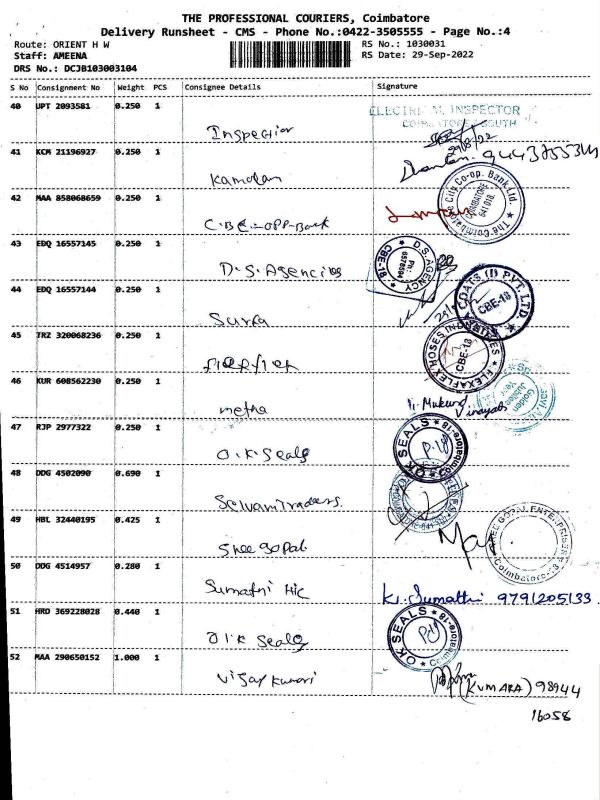 THE PROFESSIONAL COURIERS, Coimbatore
Delivery Runsheet - CMS - Phone No.:0422-3505555 - Page No.:4
Route: ORIENT H W RS No.: 1030031
Staff: AMEENA RS Date: 29-Sep-2022
DRS No.: DCJB103003104
S No Consignment No Weight PCS Consignee Details Signature
40 UPT 2093581 0.250 1
Inspector
41 KCM 21196927 0.250 1
94437553
42 MAA 858068659 0.250 1
The Coimbatore City Co-op. Bank Ltd. COIMBATORE 641 018.
43 EDQ 16557145 0.250 1
D.S. Agencies D.S. AGENCY CBE-18
44 EDQ 16557144 0.250 1
Surya COATS (I) PVT. LTD CBE-18
45 TRZ 320068236 0.250 1
FLEXAFLEX HOSES CBE-18
46 KUR 608562230 0.250 1
metha Mukund Vinayak Golden Jubilee Year
47 RJP 2977322 0.250 1
O.K Seals OK SEALS Coimbatore-18
48 DDG 4502090 0.690 1
Selvam Traders.
49 HBL 32440195 0.425 1
Shree Gopal SHREE GOPAL ENTERPRISES Coimbatore-18
50 DDG 4514957 0.280 1
Sumathi Hic K. Sumathi 9791205133
51 HRD 369228028 0.440 1
O.K Seals OK SEALS Coimbatore-18
52 MAA 290650152 1.000 1
Vijay Kumari (KUMARA) 98944
16058